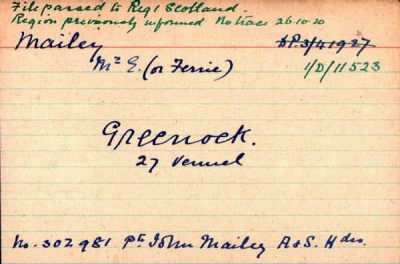 File passed to Reg! Scotland.
Region previously informed No trace 26.10.20
Mailey D.P. 3/41927
Mrs E. (or Ferrie) 1/D/11523
Greenock.
27 Vennel
No. 302981 Pte John Mailey A & S. Hdrs.